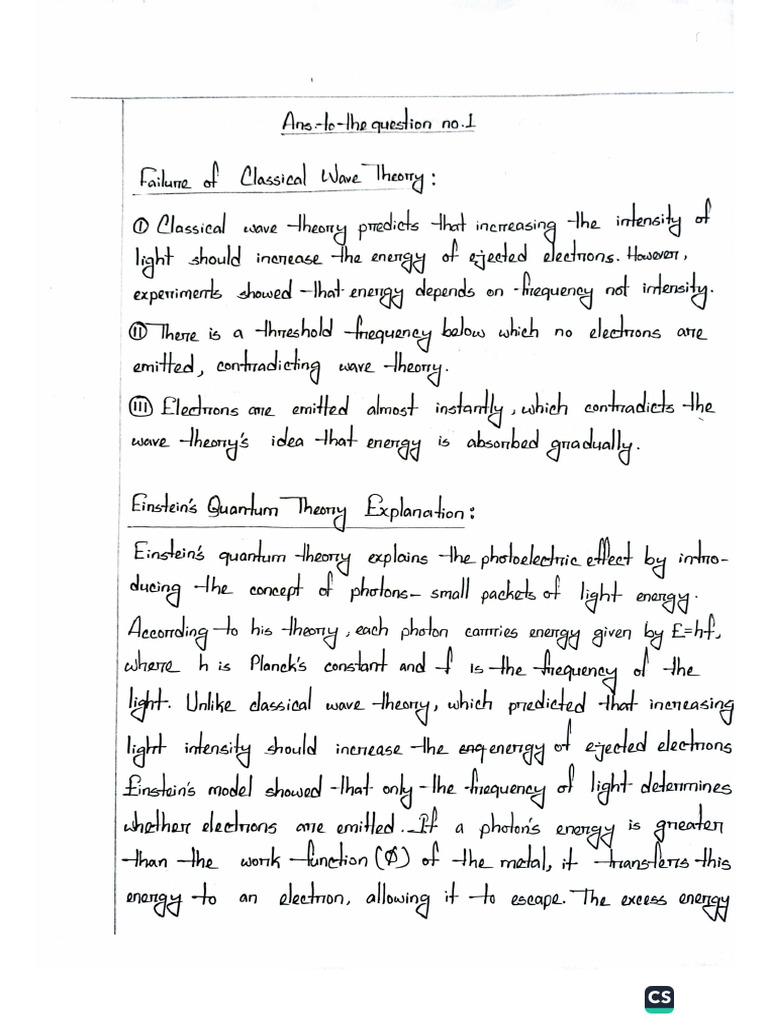 Ans-to-the question no.1
Failure of Classical Wave Theory:
I Classical wave theory predicts that increasing the intensity of
light should increase the energy of ejected electrons. However,
experiments showed that energy depends on frequency not intensity.
II There is a threshold frequency below which no electrons are
emitted, contradicting wave theory.
III Electrons are emitted almost instantly, which contradicts the
wave theory's idea that energy is absorbed gradually.
Einstein's Quantum Theory Explanation:
Einstein's quantum theory explains the photoelectric effect by intro-
ducing the concept of photons- small packets of light energy.
According to his theory, each photon carries energy given by E=hf,
where h is Planck's constant and f is the frequency of the
light. Unlike classical wave theory, which predicted that increasing
light intensity should increase the energy of ejected electrons
Einstein's model showed that only the frequency of light determines
whether electrons are emitted. If a photon's energy is greater
than the work function (Ø) of the metal, it transfers this
energy to an electron, allowing it to escape. The excess energy
CS